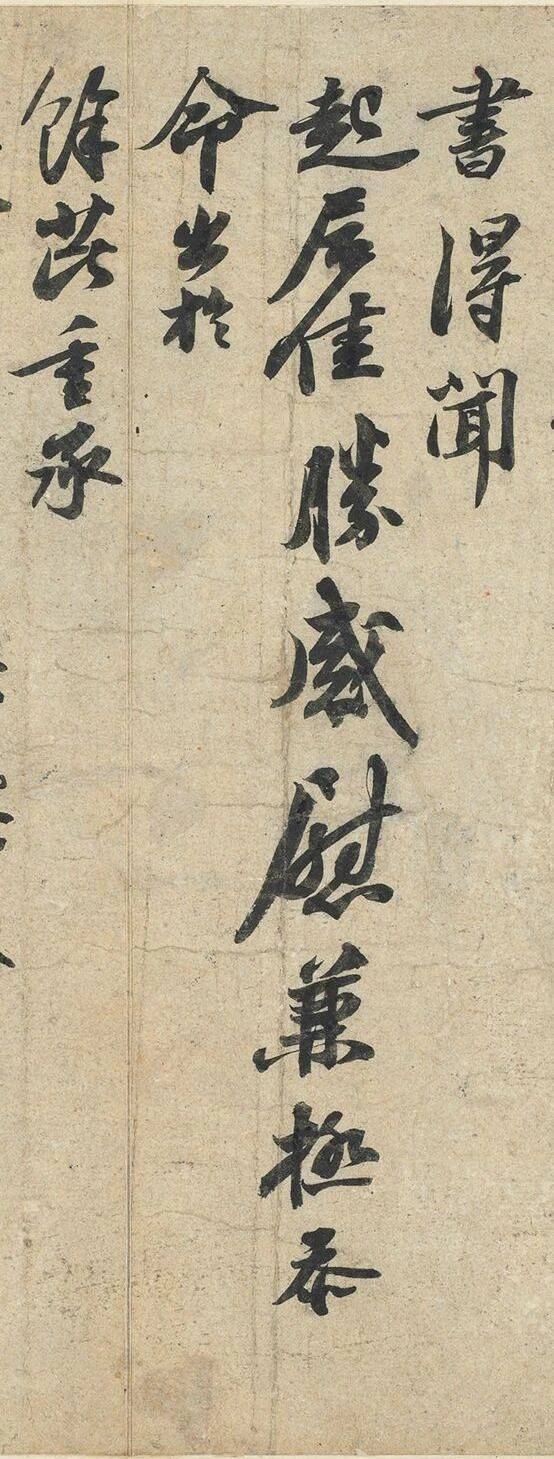 書得聞
起居佳勝感慰兼極忝
命出於
餘芘重承